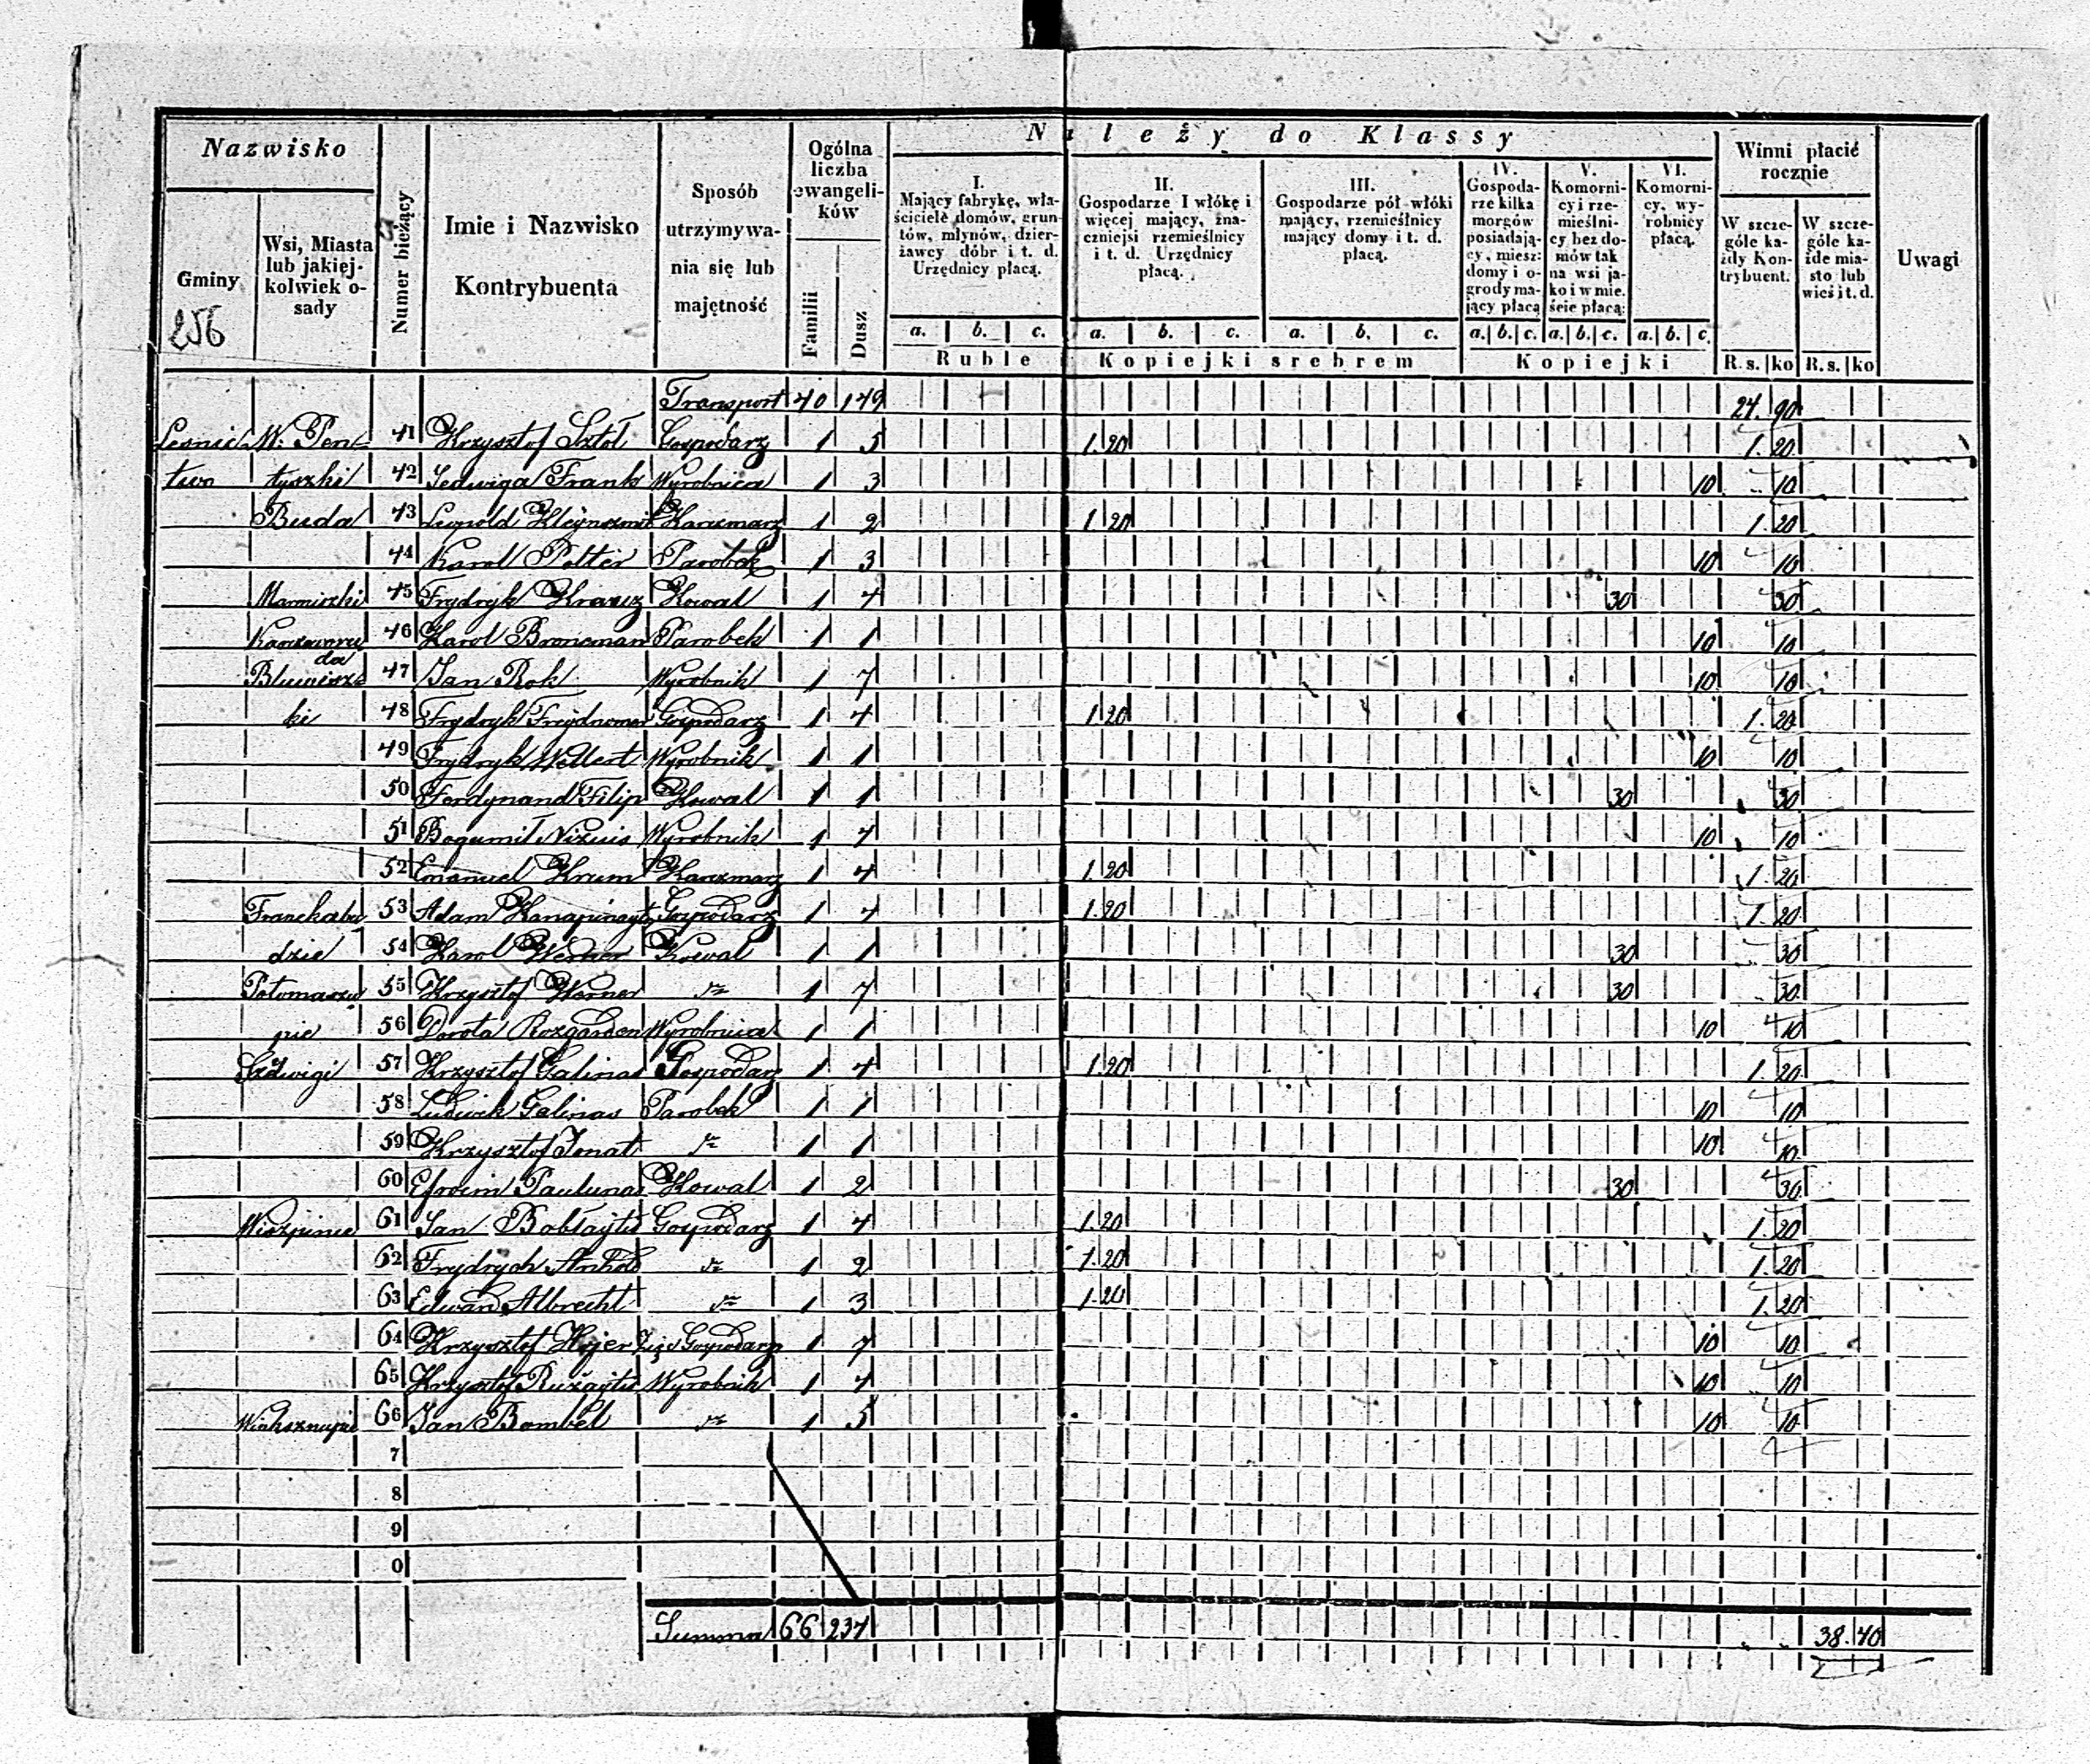 Nazwisko
Gminy
256
Wsi, Miasta
lub jakiej-
kolwiek o-
sady
Numer bieżący
Imie i Nazwisko
Kontrybuenta
Sposób
utrzymywa-
nia się lub
majętność
Ogólna
liczba
ewangeli-
ków
Familii
Dusz
Należy do Klassy
I.
Mający fabrykę, wła-
ściciele domów, grun-
tów, młynów, dzier-
żawcy dóbr i t. d.
Urzędnicy płacą.
II.
Gospodarze I włókę i
więcej mający, zna-
czniejsi rzemieślnicy
i t. d. Urzędnicy
płacą.
III.
Gospodarze pół włóki
mający, rzemieślnicy
mający domy i t. d.
płacą.
IV.
Gospoda-
rze kilka
morgów
posiadają-
cy, miesz:
domy i o-
grody ma-
jący płacą
V.
Komorni-
cy i rze-
mieślni-
cy bez do-
mów tak
na wsi ja-
ko i w mie.
ście płacą:
VI.
Komorni-
cy, wy-
robnicy
płacą.
Winni płacić
rocznie
W szcze-
góle ka-
żdy Kon-
trybuent.
W szcze-
góle ka-
żde mia-
sto lub
wieś i t. d.
Uwagi
a. b. c. a. b. c. a. b. c. a. b. c. a. b. c. a. b. c.
Ruble Kopiejki srebrem Kopiejki R. s. ko R. s. ko
Transport 40 149 24. 90
Lesnic W: Pen 41 Krzysztof Sztol Gospodarz 1 5 1.20 1. 20
two tyszki 42 Jedwiga Frank Wyrobnica 1 3 10 10
Buda 43 Leopold Kleynszmit Karczmarz 1 2 1.20 1. 20
44 Karol Polter Parobek 1 3 10 10
Marmiszki 45 Frydryk Krauz Kowal 1 4 30 30
46 Karol Bronsman Parobek 1 1 10 10
da
Bluwisz 47 Jan Rok Wyrobnik 1 7 10 10
ki 48 Frydryk Gospodarz 1 4 1.20 1. 20
49 Frydryk Wellert Wyrobnik 1 1 10 10
50 Ferdynand Filip Kowal 1 1 30 30
51 Bogumił Nizuis Wyrobnik 1 4 10 10
52 Emanuel Krum Karczmarz 1 4 1.20 1. 20
Franckabu 53 Adam Kanapinayts Gospodarz 1 4 1.20 1. 20
dzie 54 Karol Werner Kowal 1 1 30 30
55 Krzysztof Werner dto 1 7 30 30
pie 56 Dorota Rozgarden Wyrobnica 1 1 10 10
57 Krzysztof Galinas Gospodarz 1 4 1.20 1. 20
58 Ludwik Galinas Parobek 1 1 10 10
59 Krzysztof Jonat dto 1 1 10 10
60 Efroim Paulunas Kowal 1 2 30 30
61 Jan Boblaytis Gospodarz 1 4 1.20 1. 20
62 Frydrych dto 1 2 1.20 1. 20
63 Edward Albrecht dto 1 3 1.20 1. 20
64 Krzysztof Hejer Zięć Gospodarz 1 7 10 10
65 Krzysztof Ruzaytis Wyrobnik 1 4 10 10
66 Jan Bombel dto 1 5 10 10
7
8
9
0
Summa 66 237 38. 40